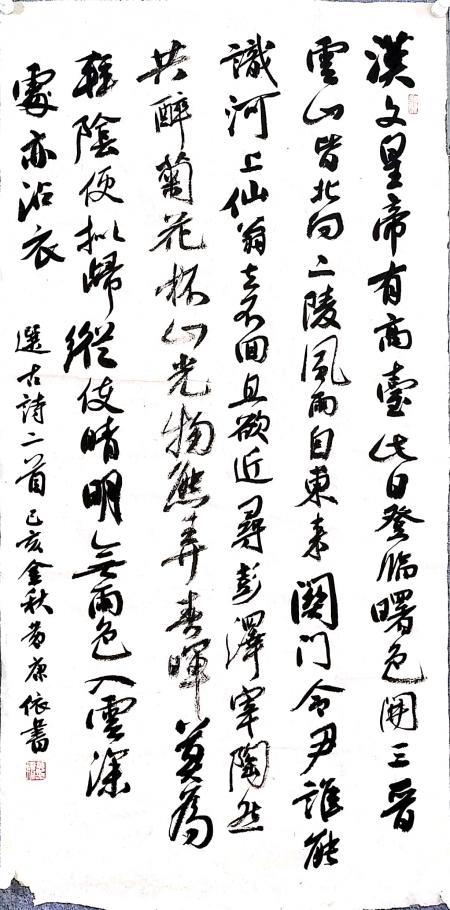 漢文皇帝有高臺此日登臨曙色開三晉
雲山皆北向二陵風雨自東來關門令尹誰能
識河上仙翁去不回且欲近尋彭澤宰陶然
共醉菊花杯山光物態弄春暉莫為
輕陰便擬歸縱使晴明無雨色入雲深
處亦沾衣
選古詩二首己亥金秋康依書